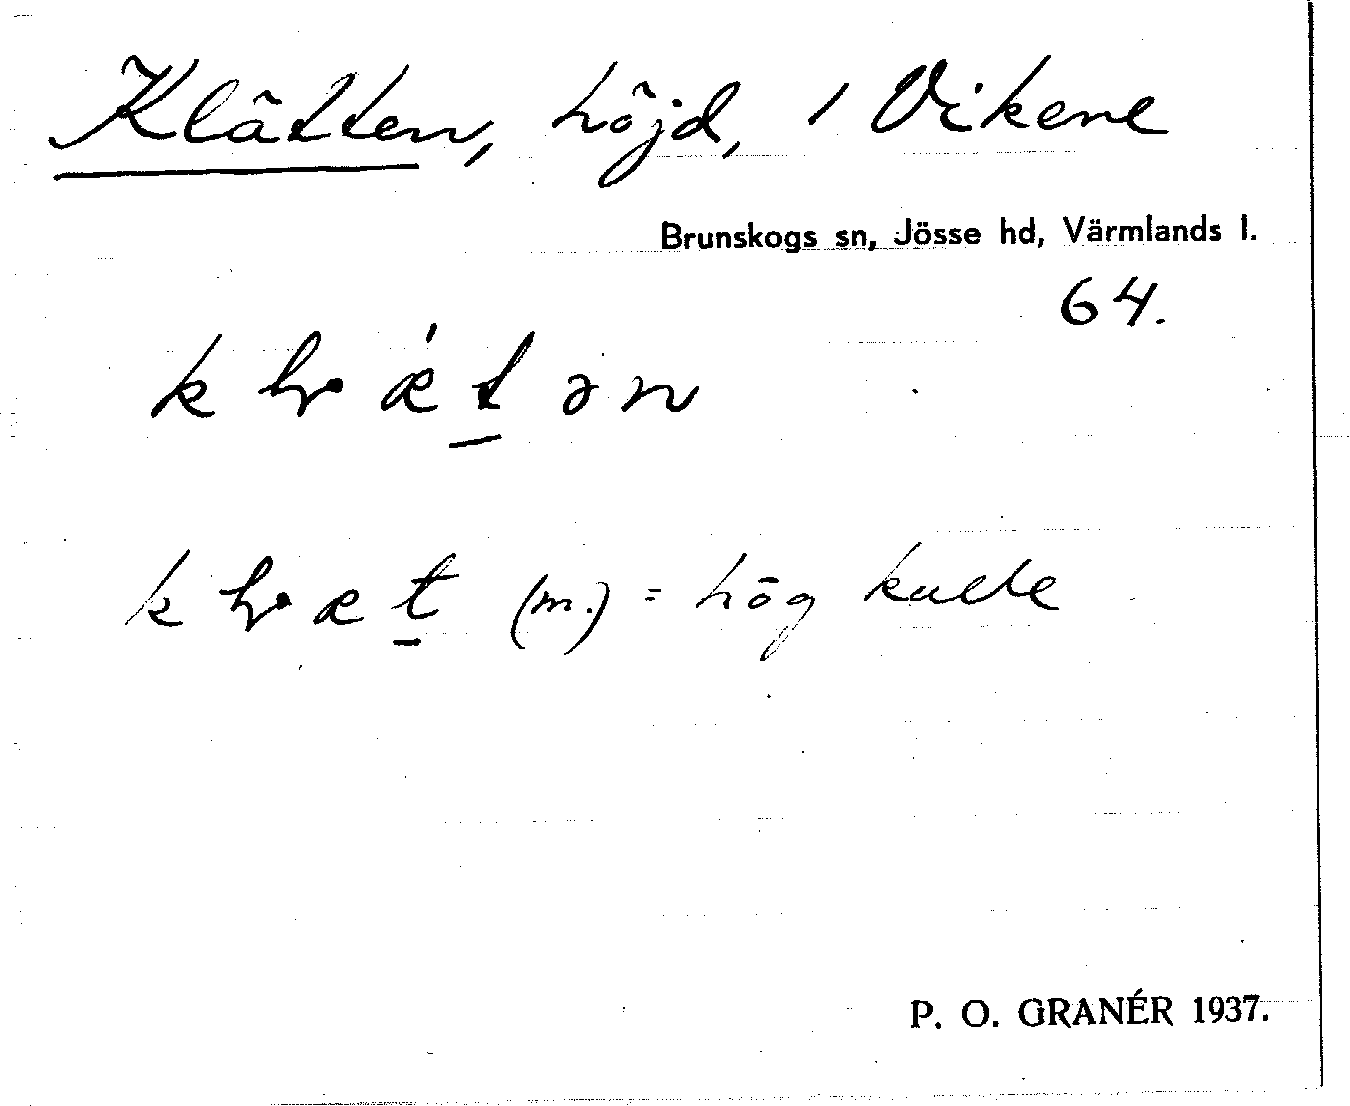 Klätten, höjd, i Vikene
Brunskogs sn, Jösse hd, Värmlands l.
64.
(m.) = hög kulle
P. O. GRANÉR 1937.